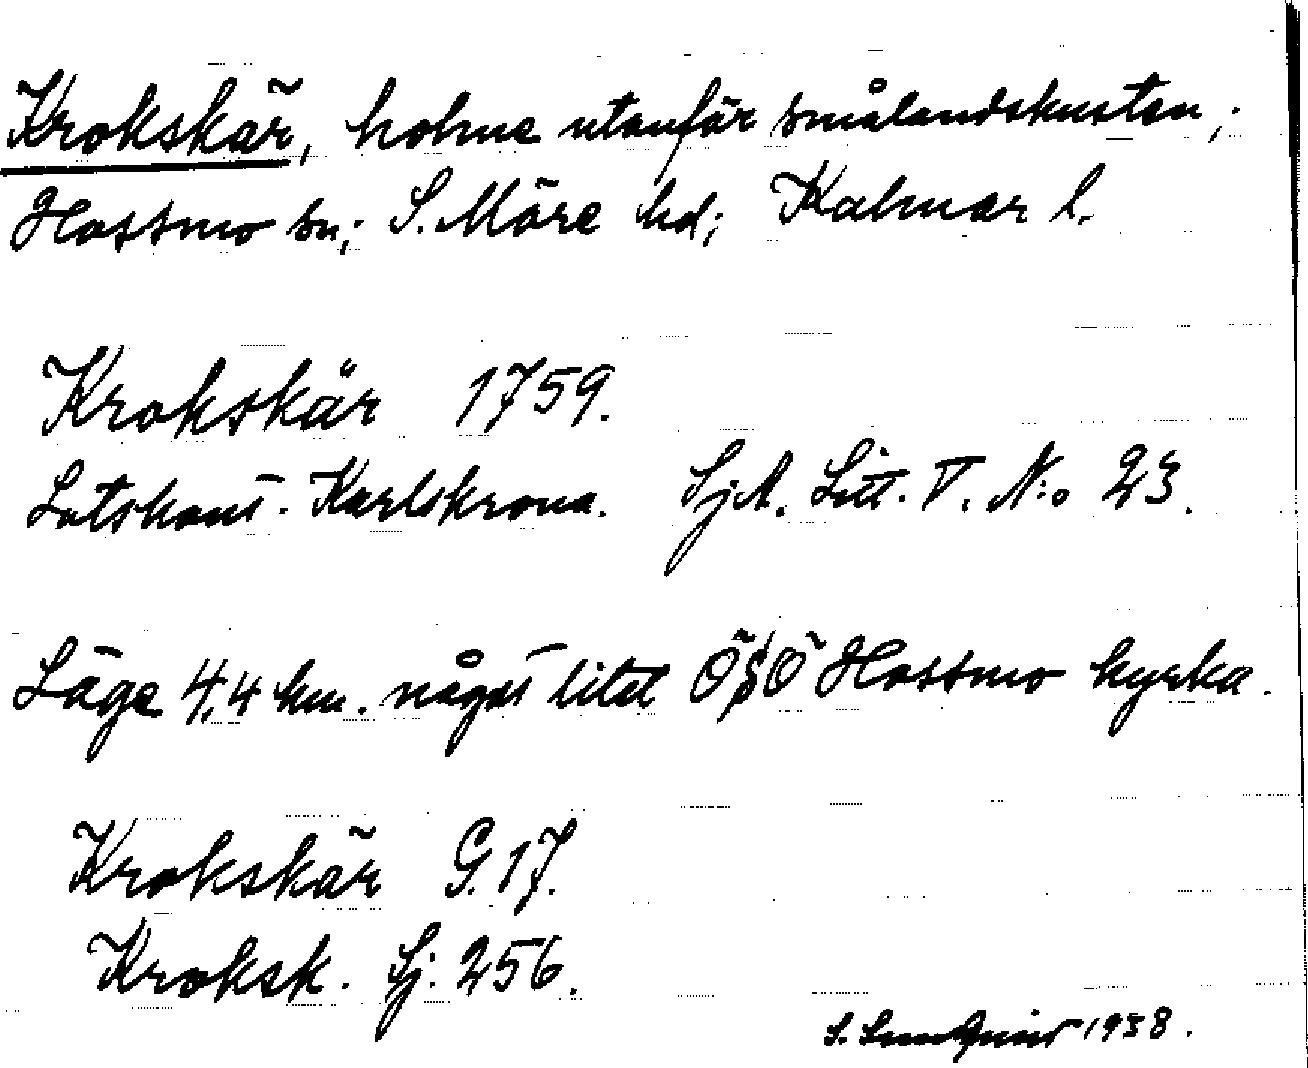 Krokskär, holme utanför smålandskusten,;
Hossmo sn; S. Möre hd; Kalmar l.
Krokskär 1759.
Lotskont. Karlskrona. SjA. Litt. V. N:o 23.
Läge 4,4 km. något litet ÖSÖ Hossmo kyrka.
Krokskär G. 17.
Kroksk. Sj. 256.
S. 1938.